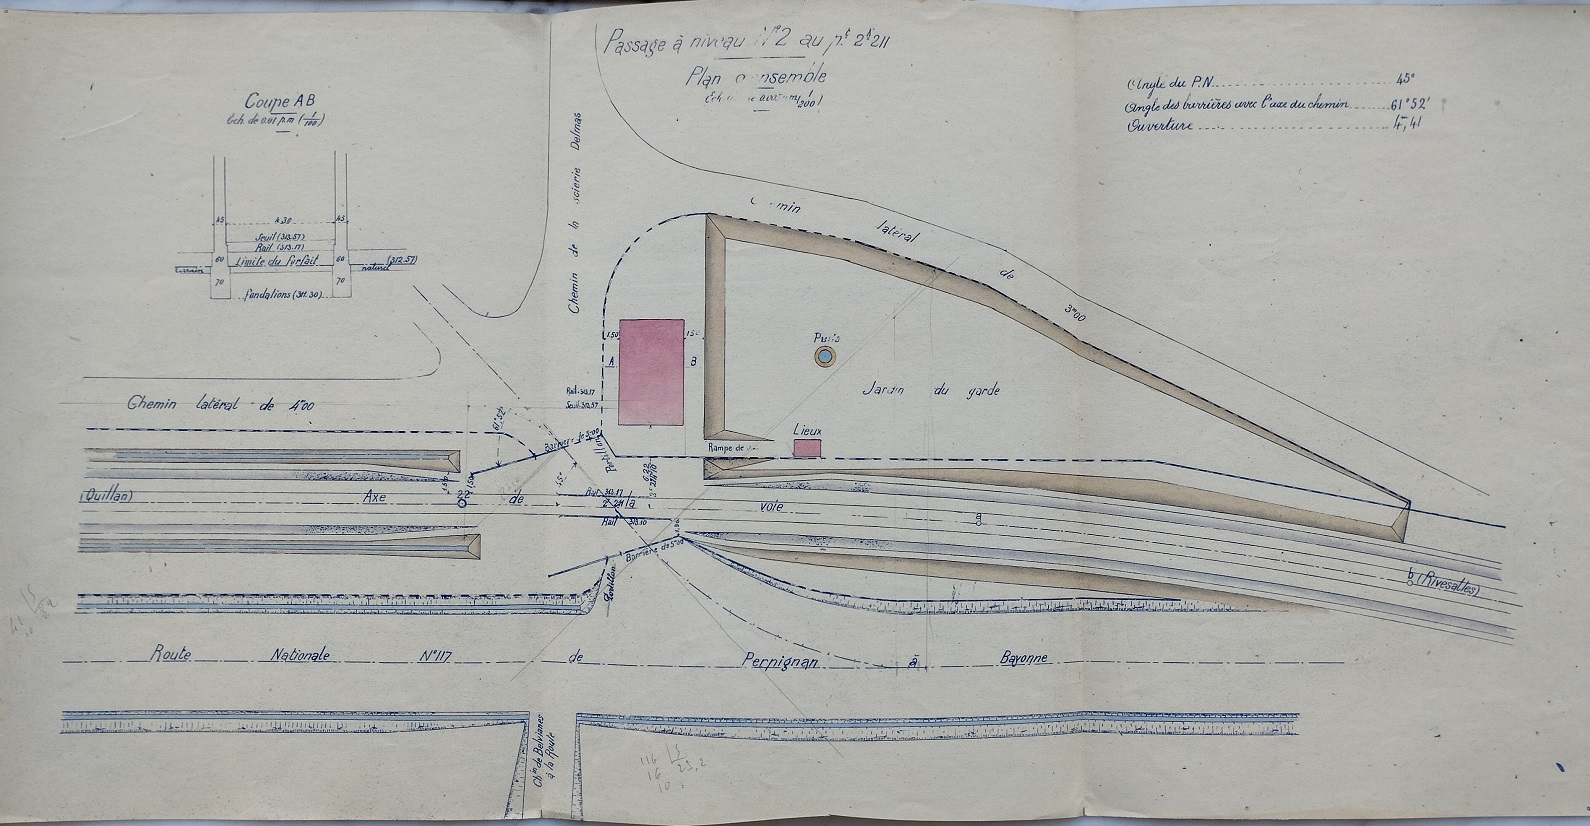 Passage à niveau N°2 au pt 2k211
Plan d'ensemble
Angle du P.N. 45°
Angle des barrières avec l'axe du chemin 61°52' ?
Ouverture 4m,41
Coupe AB
Ech. de 0.01 p.m (1/100)
45 4.30 45
Seuil (313.57)
Rail (313.17)
60 Limite du forfait 60
Terrain naturel (312.57)
70 70
fondations (311.30)
Chemin de la scierie Delmas
latéral de 3m00
1.50
A B
Puits
Jardin du garde
Rail 313.17
Seuil 313.57
Chemin latéral de 4m00
61°52'
Barrière de 5m00
Portillon
Lieux
Rampe de
1.50
45°
(Quillan) Axe de la voie
22
Rail 313.17
Rail 313.10
Barrière de 5m00
Portillon
b (Rivesaltes)
Route Nationale N°117 de Perpignan à Bayonne
Chin de Belvianes
à la Route
116 15
16 23,2
10